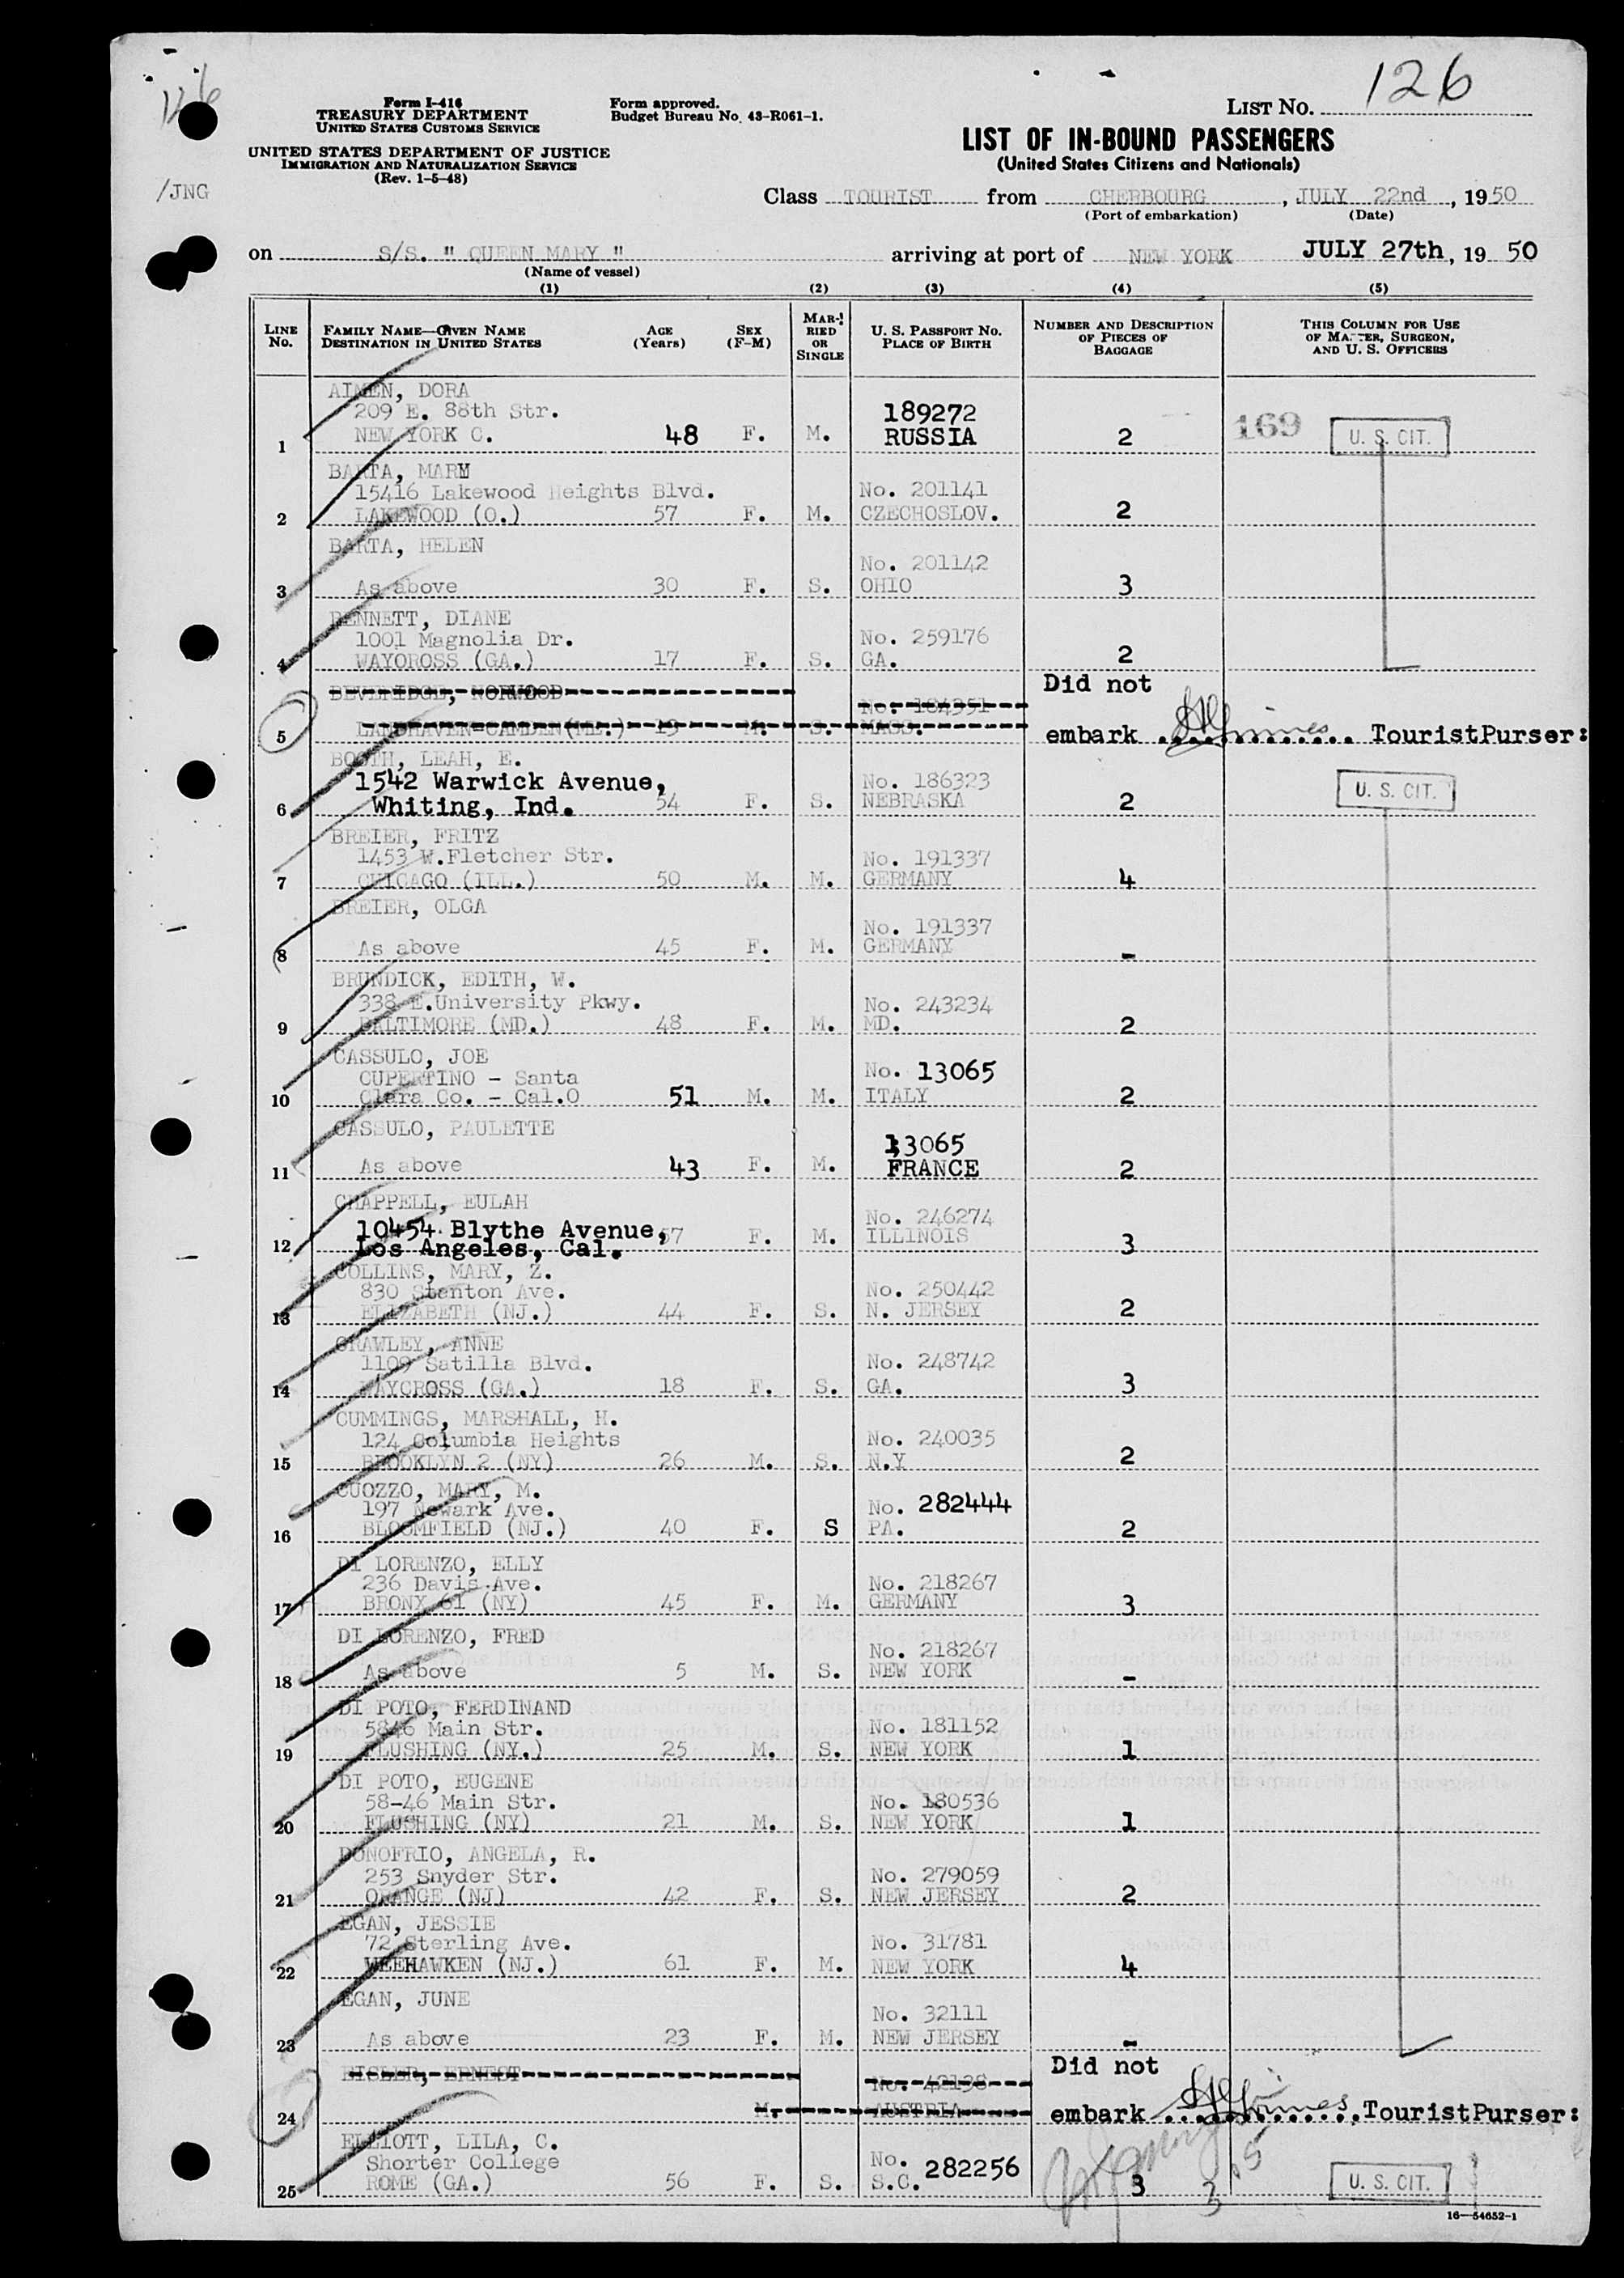 126
126
Form I-416
TREASURY DEPARTMENT
UNITED STATES CUSTOMS SERVICE
UNITED STATES DEPARTMENT OF JUSTICE
IMMIGRATION AND NATURALIZATION SERVICE
(Rev. 1-5-48)
Form approved.
Budget Bureau No. 43-R061-1.
LIST NO. 126
LIST OF IN-BOUND PASSENGERS
(United States Citizens and Nationals)
/JNG
Class TOURIST from CHERBOURG, JULY 22nd, 1950
(Port of embarkation) (Date)
on S/S. " QUEEN MARY " arriving at port of NEW YORK JULY 27th, 19 50
(Name of vessel)
(1) (2) (3) (4) (5)
LINE No. FAMILY NAME—GIVEN NAME DESTINATION IN UNITED STATES AGE (Years) SEX (F-M) MARRIED OR SINGLE U. S. PASSPORT NO. PLACE OF BIRTH NUMBER AND DESCRIPTION OF PIECES OF BAGGAGE THIS COLUMN FOR USE OF MASTER, SURGEON, AND U. S. OFFICERS
AIMEN, DORA
209 E. 88th Str. 189272
1 NEW YORK C. 48 F. M. RUSSIA 2 169 U. S. CIT.
BARTA, MARY
15416 Lakewood Heights Blvd. No. 201141
2 LAKEWOOD (O.) 57 F. M. CZECHOSLOV. 2
BARTA, HELEN
No. 201142
3 As above 30 F. S. OHIO 3
BENNETT, DIANE
1001 Magnolia Dr. No. 259176
4 WAYOROSS (GA.) 17 F. S. GA. 2
BEVERIDGE, NORWOOD Did not
No. 184351
5 LANDHAVEN=CAMDEN(ME.) 19 M. S. MASS. embark TouristPurser:
BOOTH, LEAH, E.
1542 Warwick Avenue, No. 186323
6 Whiting, Ind. 54 F. S. NEBRASKA 2 U. S. CIT.
BREIER, FRITZ
1453 W.Fletcher Str. No. 191337
7 CHICAGO (ILL.) 50 M. M. GERMANY 4
BREIER, OLGA
No. 191337
8 As above 45 F. M. GERMANY -
BRUNDICK, EDITH, W.
338 E.University Pkwy. No. 243234
9 BALTIMORE (MD.) 48 F. M. MD. 2
CASSULO, JOE
CUPERTINO - Santa No. 13065
10 Clara Co. - Cal.O 51 M. M. ITALY 2
CASSULO, PAULETTE
13065
11 As above 43 F. M. FRANCE 2
CHAPPELL, EULAH
10454 Blythe Avenue, No. 246274
12 Los Angeles, Cal. 57 F. M. ILLINOIS 3
COLLINS, MARY, Z.
830 Stanton Ave. No. 250442
13 ELIZABETH (NJ.) 44 F. S. N. JERSEY 2
CRAWLEY, ANNE
1109 Satilla Blvd. No. 248742
14 WAYCROSS (GA.) 18 F. S. GA. 3
CUMMINGS, MARSHALL, H.
124 Columbia Heights No. 240035
15 BROOKLYN 2 (NY) 26 M. S. N.Y 2
CUOZZO, MARY, M.
197 Newark Ave. No. 282444
16 BLOOMFIELD (NJ.) 40 F. S PA. 2
DI LORENZO, ELLY
236 Davis Ave. No. 218267
17 BRONX 61 (NY) 45 F. M. GERMANY 3
DI LORENZO, FRED
No. 218267
18 As above 5 M. S. NEW YORK -
DI POTO, FERDINAND
5846 Main Str. No. 181152
19 FLUSHING (NY.) 25 M. S. NEW YORK 1
DI POTO, EUGENE
58-46 Main Str. No. 180536
20 FLUSHING (NY) 21 M. S. NEW YORK 1
DONOFRIO, ANGELA, R.
253 Snyder Str. No. 279059
21 ORANGE (NJ) 42 F. S. NEW JERSEY 2
EGAN, JESSIE
72 Sterling Ave. No. 31781
22 WEEHAWKEN (NJ.) 61 F. M. NEW YORK 4
EGAN, JUNE
No. 32111
23 As above 23 F. M. NEW JERSEY -
EISLER, ERNEST Did not
No. 42138
24 M. AUSTRIA embark TouristPurser:
ELLIOTT, LILA, C.
Shorter College No. 282256
25 ROME (GA.) 56 F. S. S.C. 3 U. S. CIT.
16—54652-1